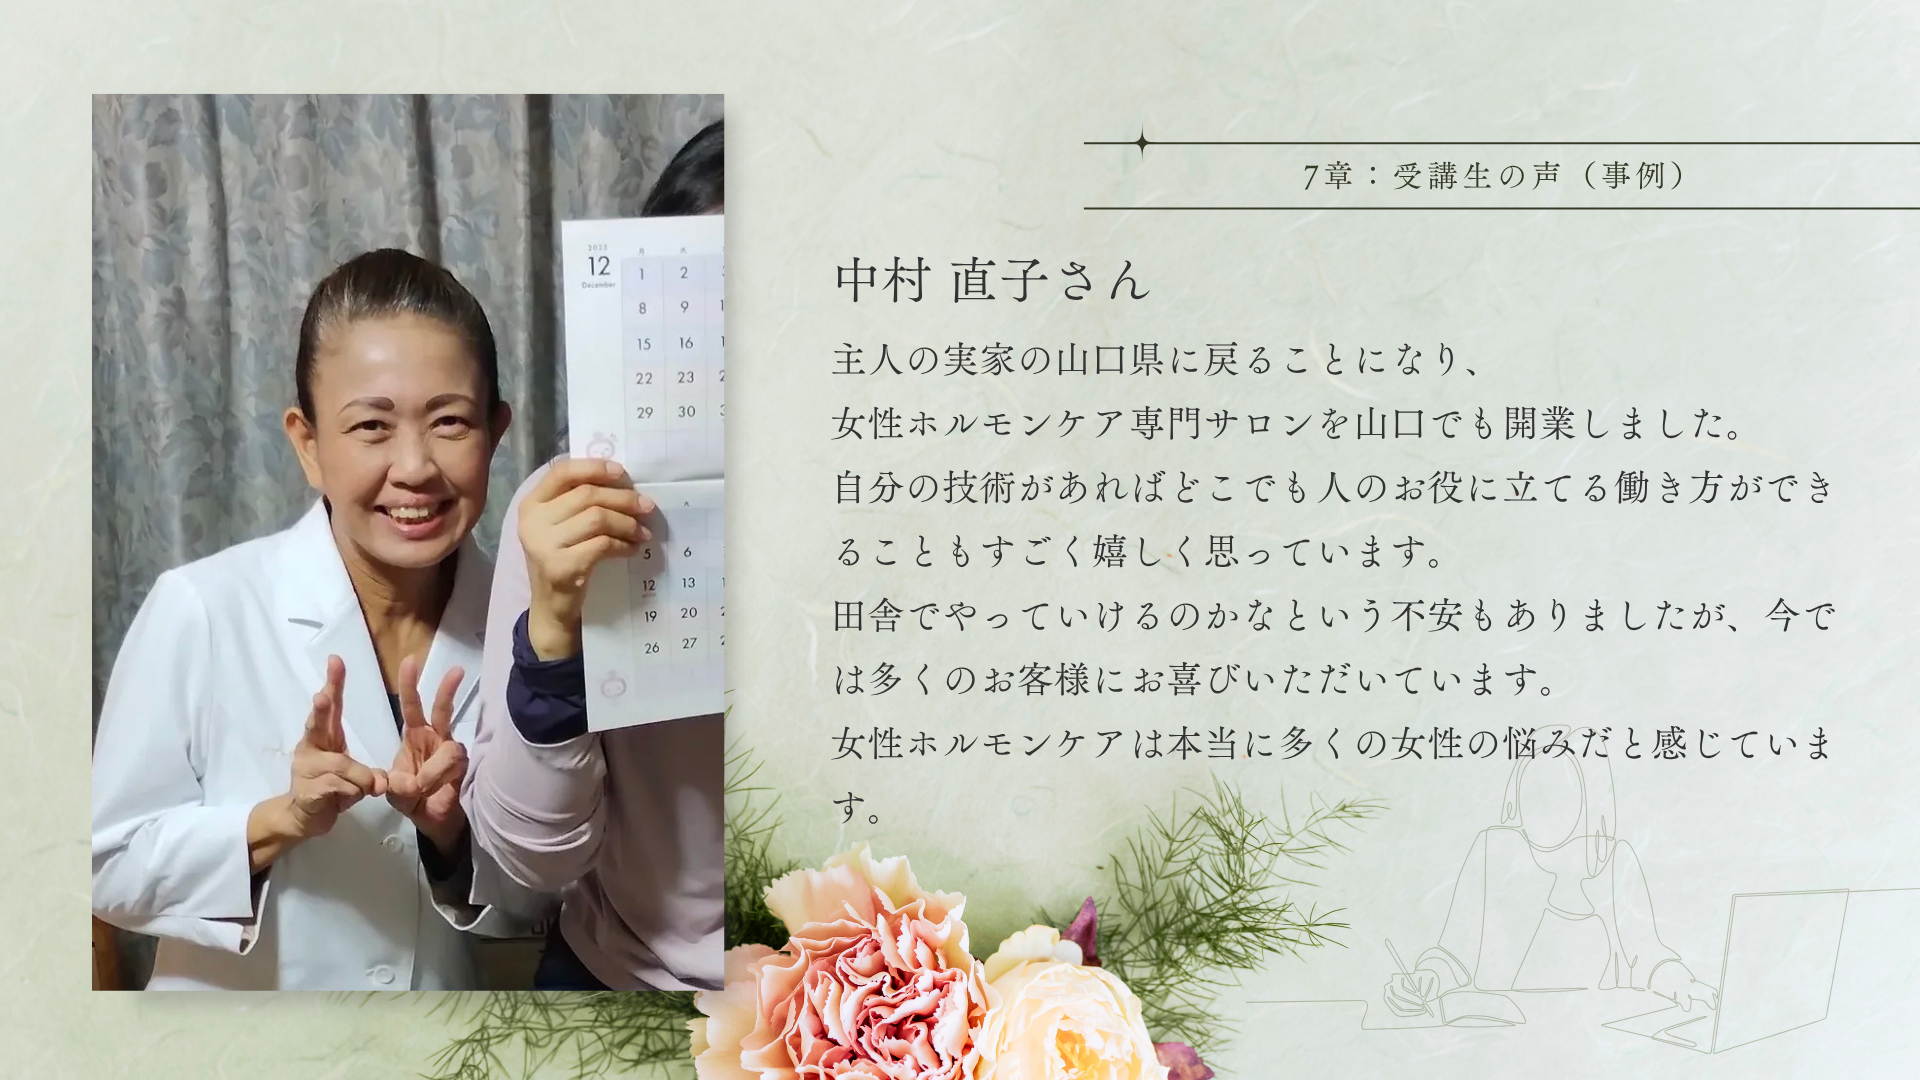 7章：受講生の声（事例）
中村 直子さん
主人の実家の山口県に戻ることになり、
女性ホルモンケア専門サロンを山口でも開業しました。
自分の技術があればどこでも人のお役に立てる働き方ができ
ることもすごく嬉しく思っています。
田舎でやっていけるのかなという不安もありましたが、今で
は多くのお客様にお喜びいただいています。
女性ホルモンケアは本当に多くの女性の悩みだと感じていま
す。
2023
12
December
月 火
1 2
8 9
15 16
22 23
29 30
5 6
12 13
19 20
26 27